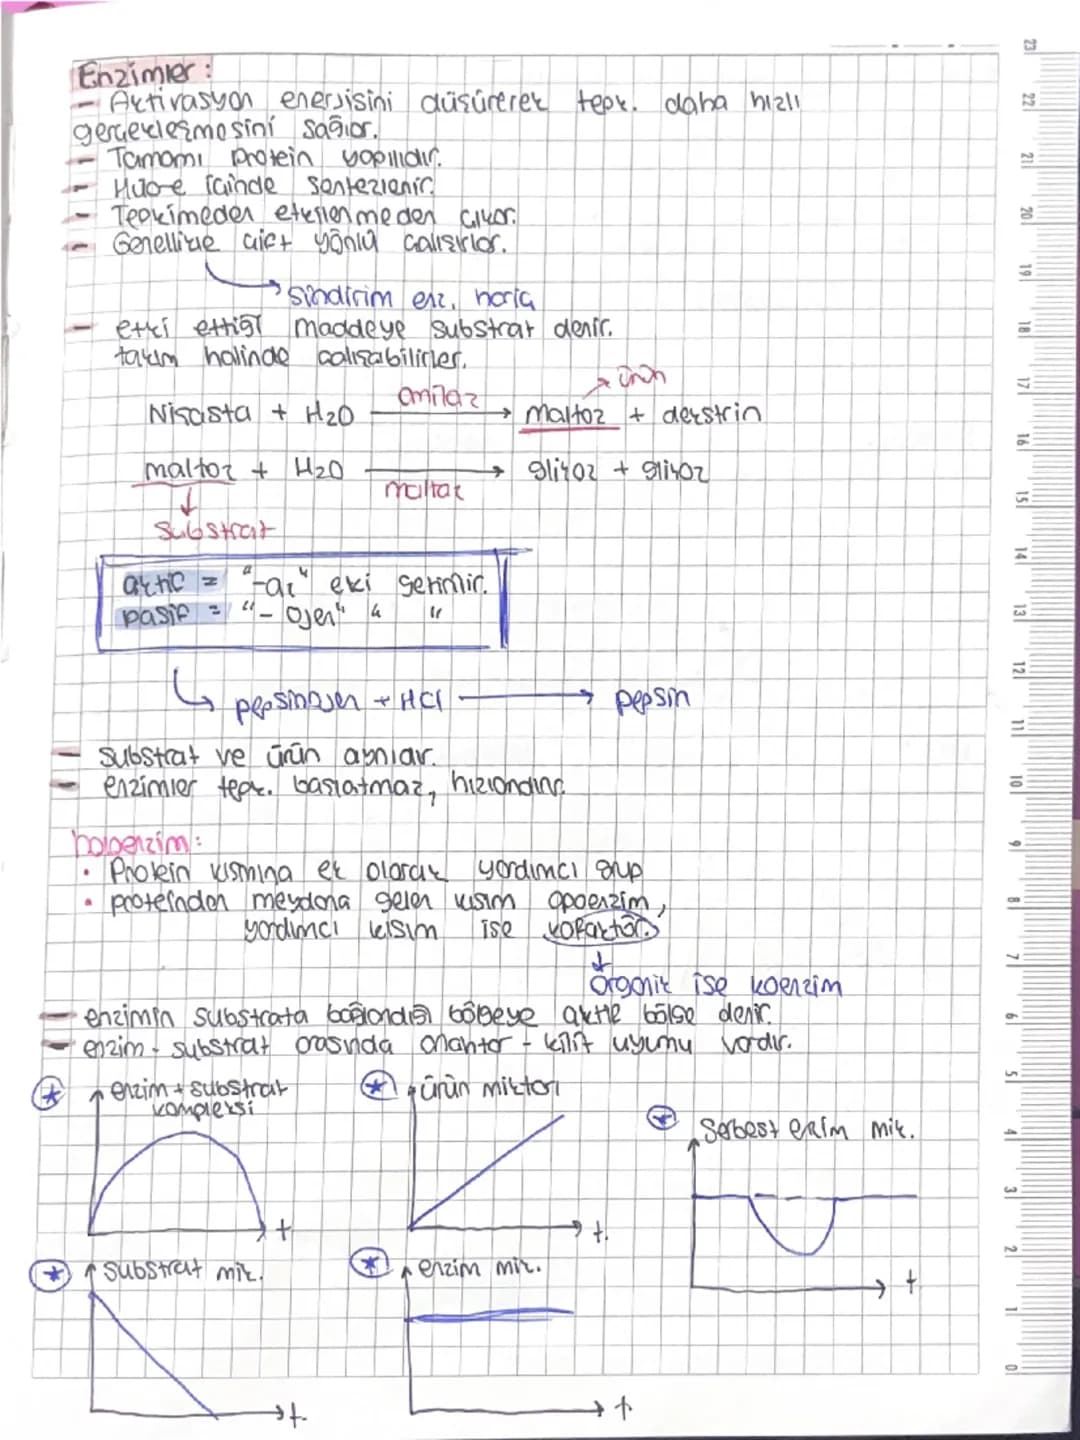 Enzimler :
- Aktivasyon enerjisini düşürerek tepk. daha hızlı
gerçekleşmesini sağlar.
- Tamamı protein yapılıdır.
- Hücre içinde sentezlenir.
- Tepkimeden etkilenmeden çıkar.
- Genellikle çift yönlü çalışırlar.
sindirim enz. hariç
- etki ettiği maddeye substrat denir.
takım halinde çalışabilirler.
ürün
Nişasta + H2O amilaz → maltoz + dekstrin
maltoz + H2O maltaz → glikoz + glikoz
substrat
aktif = "-az" eki getirilir.
pasif = "-ojen" " "
pepsinojen + HCl → pepsin
- substrat ve ürün aynılar.
- enzimler tepk. başlatmaz, hızlandırır.
holoenzim :
• Protein kısmına ek olarak yardımcı grup
• proteinden meydana gelen kısım apoenzim,
yardımcı kısım ise kofaktör.
Organik ise koenzim
- enzimin substrata bağlandığı bölgeye aktif bölge denir.
- enzim - substrat arasında anahtar - kilit uyumu vardır.
enzim + substrat
kompleksi
t
ürün miktarı
t.
Serbest enzim mik.
t
substrat mik.
t.
enzim mik.
t
23
22
21
20
19
18
17
16
15
14
13
12
11
10
9
8
7
6
5
4
3
2
1
0